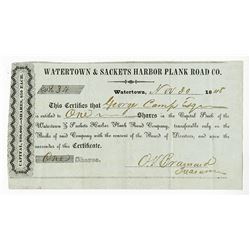 WATERTOWN & SACKETS HARBOR PLANK ROAD CO.
CAPITAL, $40,000.—SHARES, $50 EACH.
No. 34
Watertown, Nov 30 1848
This Certifies that George Camp Esqr
is entitled to One Shares in the Capital Stock of the
Watertown & Sackets Harbor Plank Road Company, transferable only on the
Books of said Company with the consent of the Board of Directors, and upon the
surrender of this Certificate.
One Shares.
O. V. Brainard
Treasurer